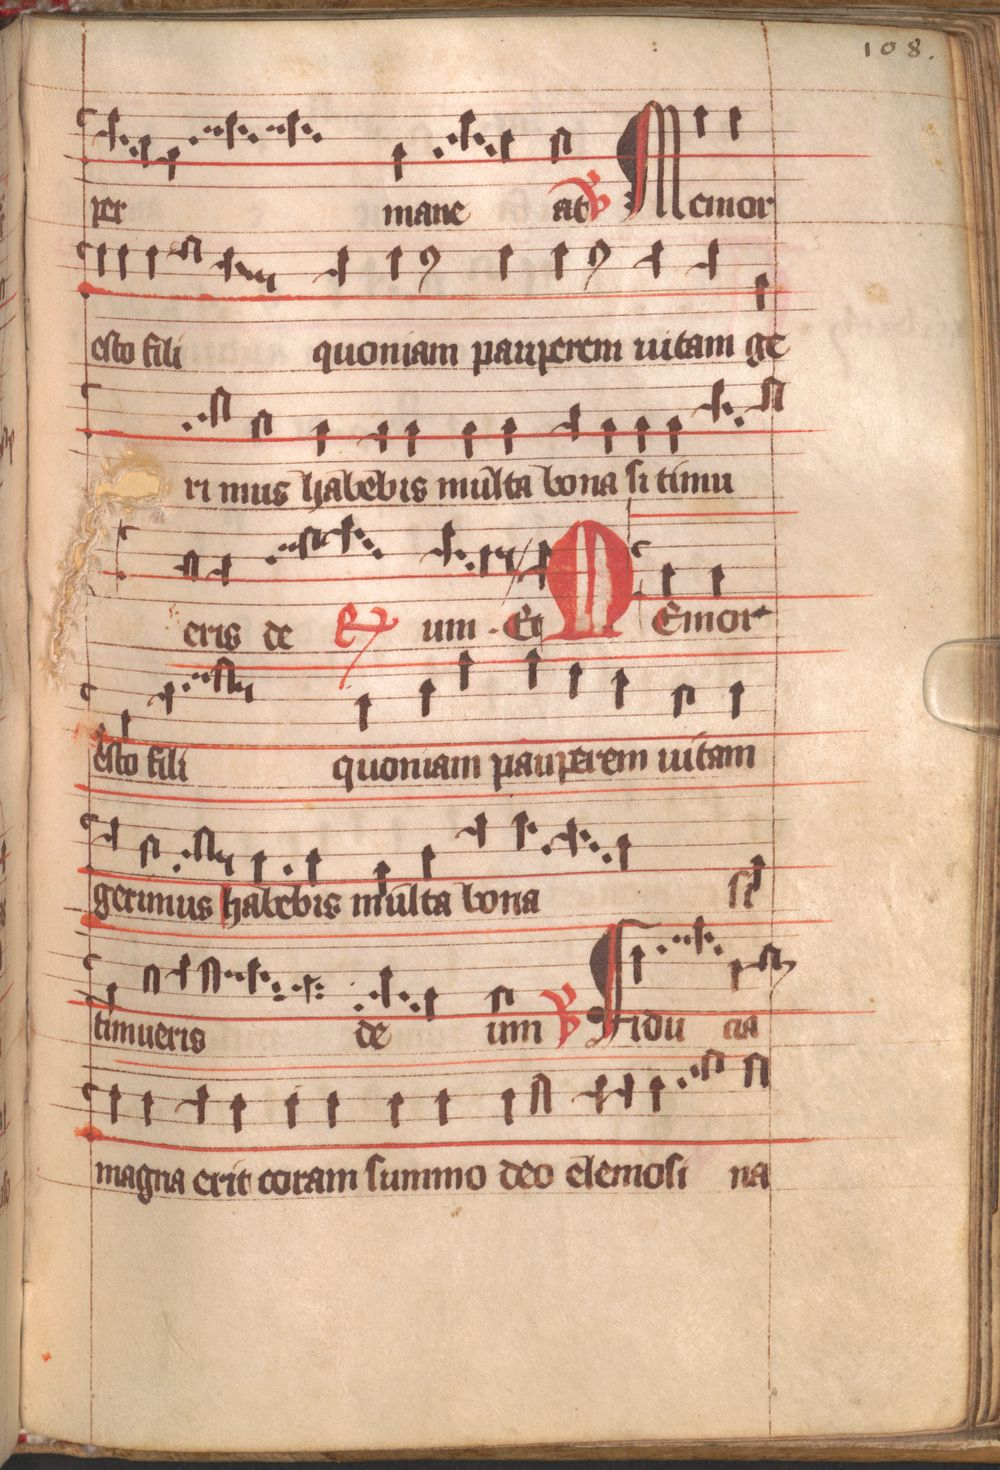 108.
per mane at ℣ Memor
esto fili quoniam pauperem uitam ge
ri mus habebis multa bona si timu
eris de um · Et Memor
esto fili quoniam pauperem uitam
gerimus habebis multa bona si
timueris de um ℣ Fidu cia
magna erit coram summo deo elemosi na